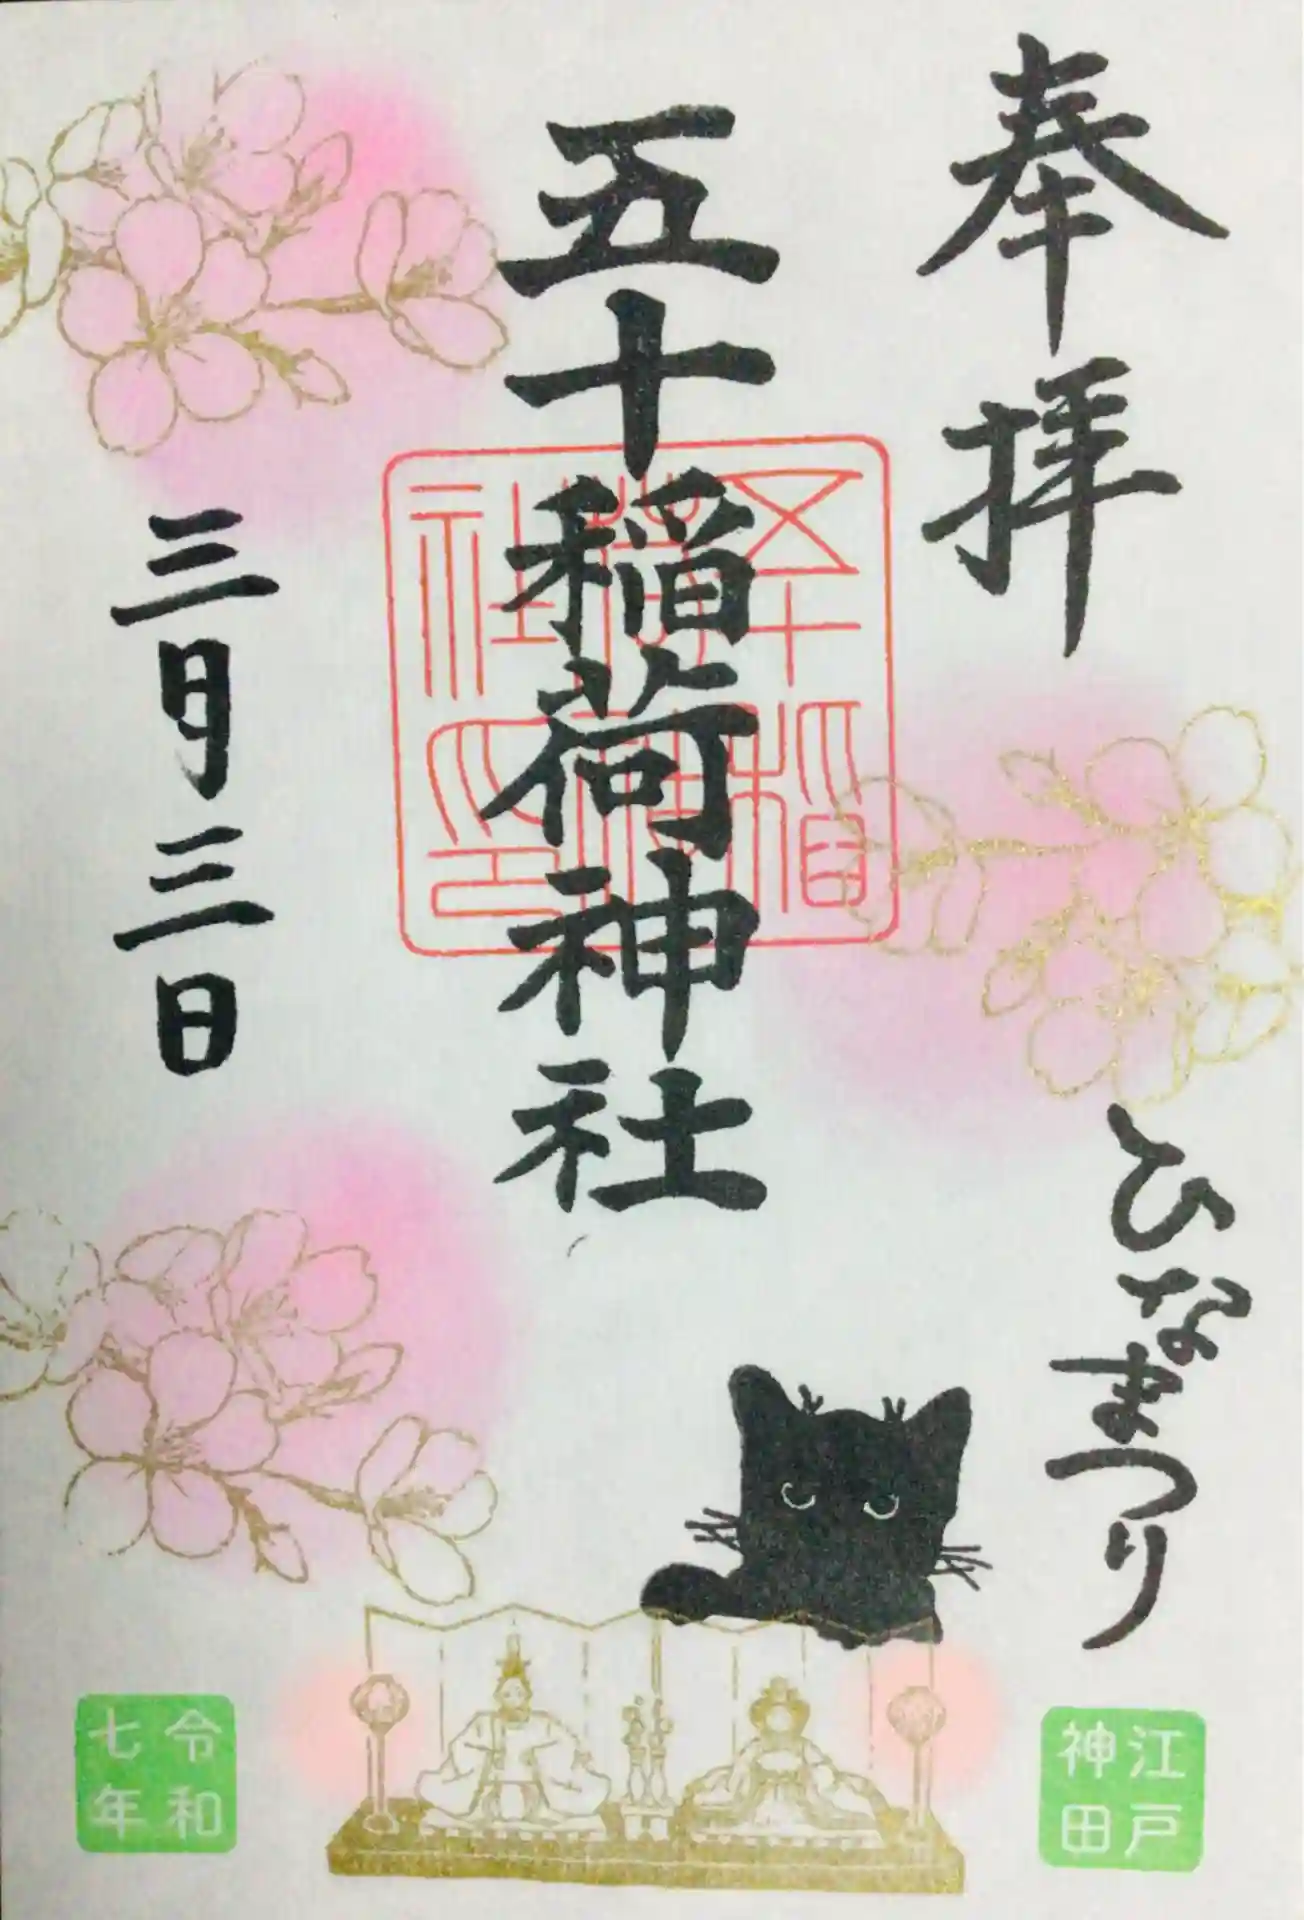 奉拝
ひなまつり
江戸
神田
五十稲荷神社
五十稲
荷神
社印
三月三日
令和
七年